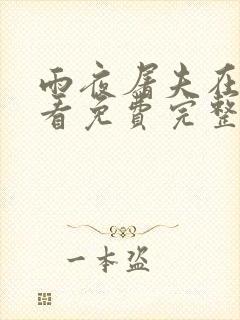 雨夜屠夫在
看免费完整
一本盗